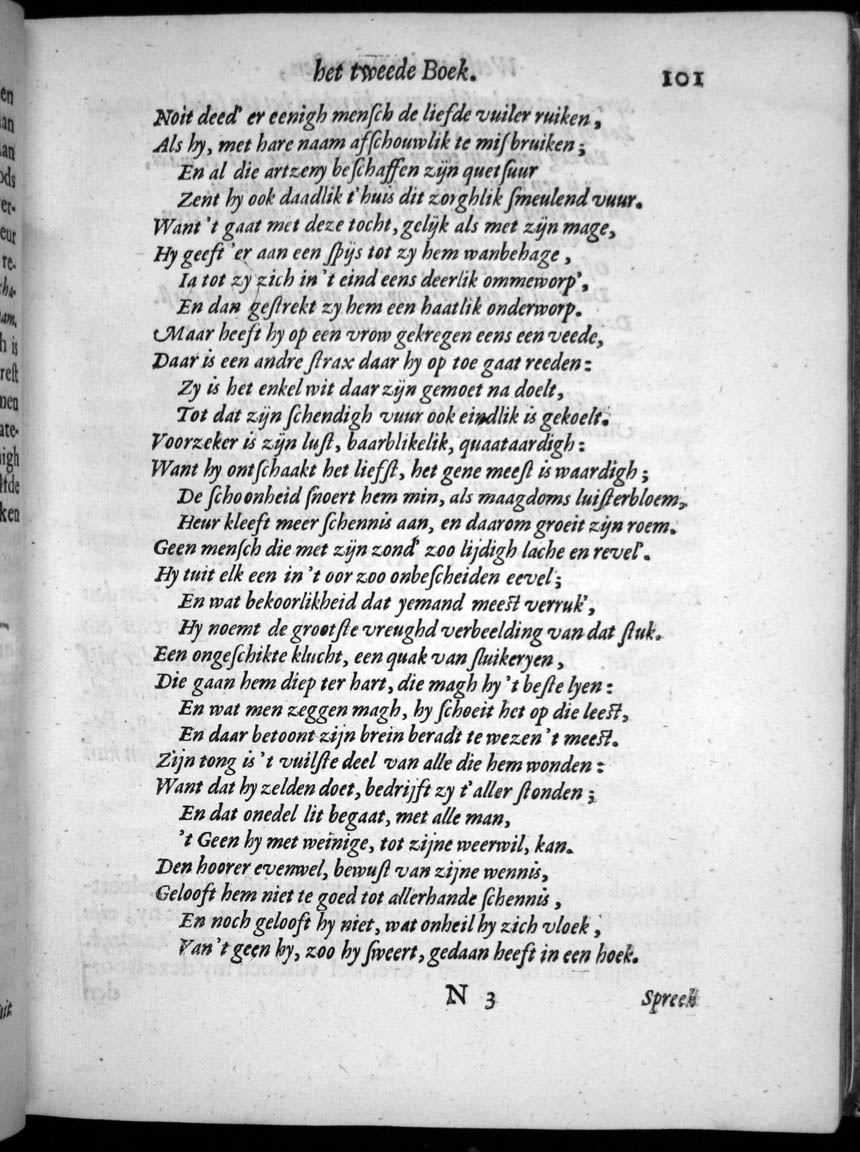 het tweede Boek. 101
Noit deed' er eenigh menſch de liefde vuiler ruiken,
Als hy, met hare naam afſchouwlik te miſbruiken;
En al die artzeny beſchaffen zijn quetſuur
Zent hy ook daadlik t'huis dit zorghlik ſmeulend vuur.
Want 't gaat met deze tocht, gelijk als met zijn mage,
Hy geeft 'er aan een ſpijs tot zy hem wanbehage,
Ia tot zy zich in 't eind eens deerlik ommeworp',
En dan geſtrekt zy hem een haatlik onderworp.
Maar heeft hy op een vrow gekregen eens een veede,
Daar is een andre ſtrax daar hy op toe gaat reeden:
Zy is het enkel wit daar zijn gemoet na doelt,
Tot dat zijn ſchendigh vuur ook eindlik is gekoelt.
Voorzeker is zijn luſt, baarblikelik, quaataardigh:
Want hy ontſchaakt het liefſt, het gene meeſt is waardigh;
De ſchoonheid ſnoert hem min, als maagdoms luiſterbloem,
Heur kleeft meer ſchennis aan, en daarom groeit zijn roem.
Geen menſch die met zijn zond' zoo lijdigh lache en revel'.
Hy tuit elk een in 't oor zoo onbeſcheiden eevel;
En wat bekoorlikheid dat yemand meeſt verruk',
Hy noemt de grootſte vreughd verbeelding van dat ſtuk.
Een ongeſchikte klucht, een quak van ſluikeryen,
Die gaan hem diep ter hart, die magh hy 't beſte lyen:
En wat men zeggen magh, hy ſchoeit het op die leeſt,
En daar betoont zijn brein beradt te wezen 't meeſt.
Zijn tong is 't vuilſte deel van alle die hem wonden:
Want dat hy zelden doet, bedrijft zy t'aller ſtonden;
En dat onedel lit begaat, met alle man,
't Geen hy met weinige, tot zijne weerwil, kan.
Den hoorer evenwel, bewuſt van zijne wennis,
Gelooft hem niet te goed tot allerhande ſchennis,
En noch gelooft hy niet, wat onheil hy zich vloek,
Van 't geen hy, zoo hy ſweert, gedaan heeft in een hoek.
N 3 Spreek